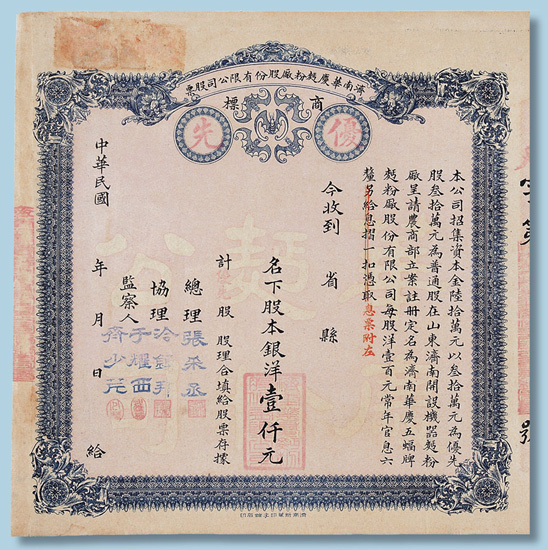 濟南華慶麪粉廠股份有限公司股票
商標
優先
字第 號
本公司招集資本金陸拾萬元以叁拾萬元為優先
股叁拾萬元為普通股在山東濟南開設機器麪粉
廠呈請農商部立業註冊定名為濟南華慶五蝠牌
麪粉廠股份有限公司每股洋壹百元常年官息六
釐另給息摺一扣憑取息票附左
今收到 省 縣
名下股本銀洋壹仟元
計 股 股理合填給股票存據
總理 張采丞
協理 冷鎮邦
監察人 于耀西
齊少
中華民國 年 月 日 給